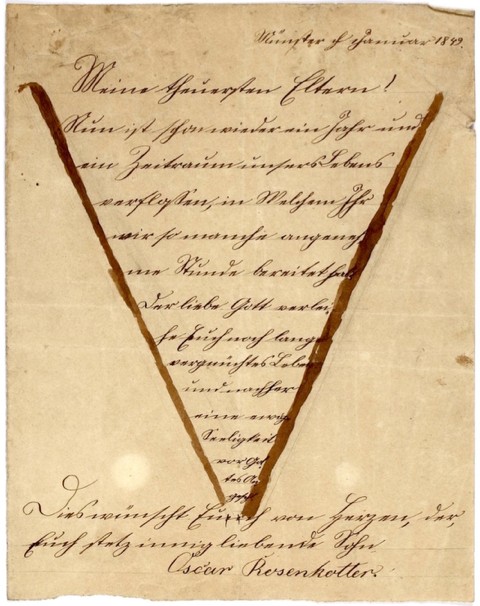 Münster d Januar 1849.
Meine theuersten Eltern!
Nun ist schon wieder ein Jahr und
ein Zeitraum unsers Lebens
verflossen, in Welchem Ihr
wir so manche angeneh
me Stunde bereitet hab
Der liebe Gott verlei,
he Euch noch lange
vergnüchtes Leben
und nachher
eine ewig
Seeligkeit
vor Got
tes An
Dies wünscht Euch von Herzen, der,
Euch stetz innig liebende Sohn
Oscar Rosenkotter.